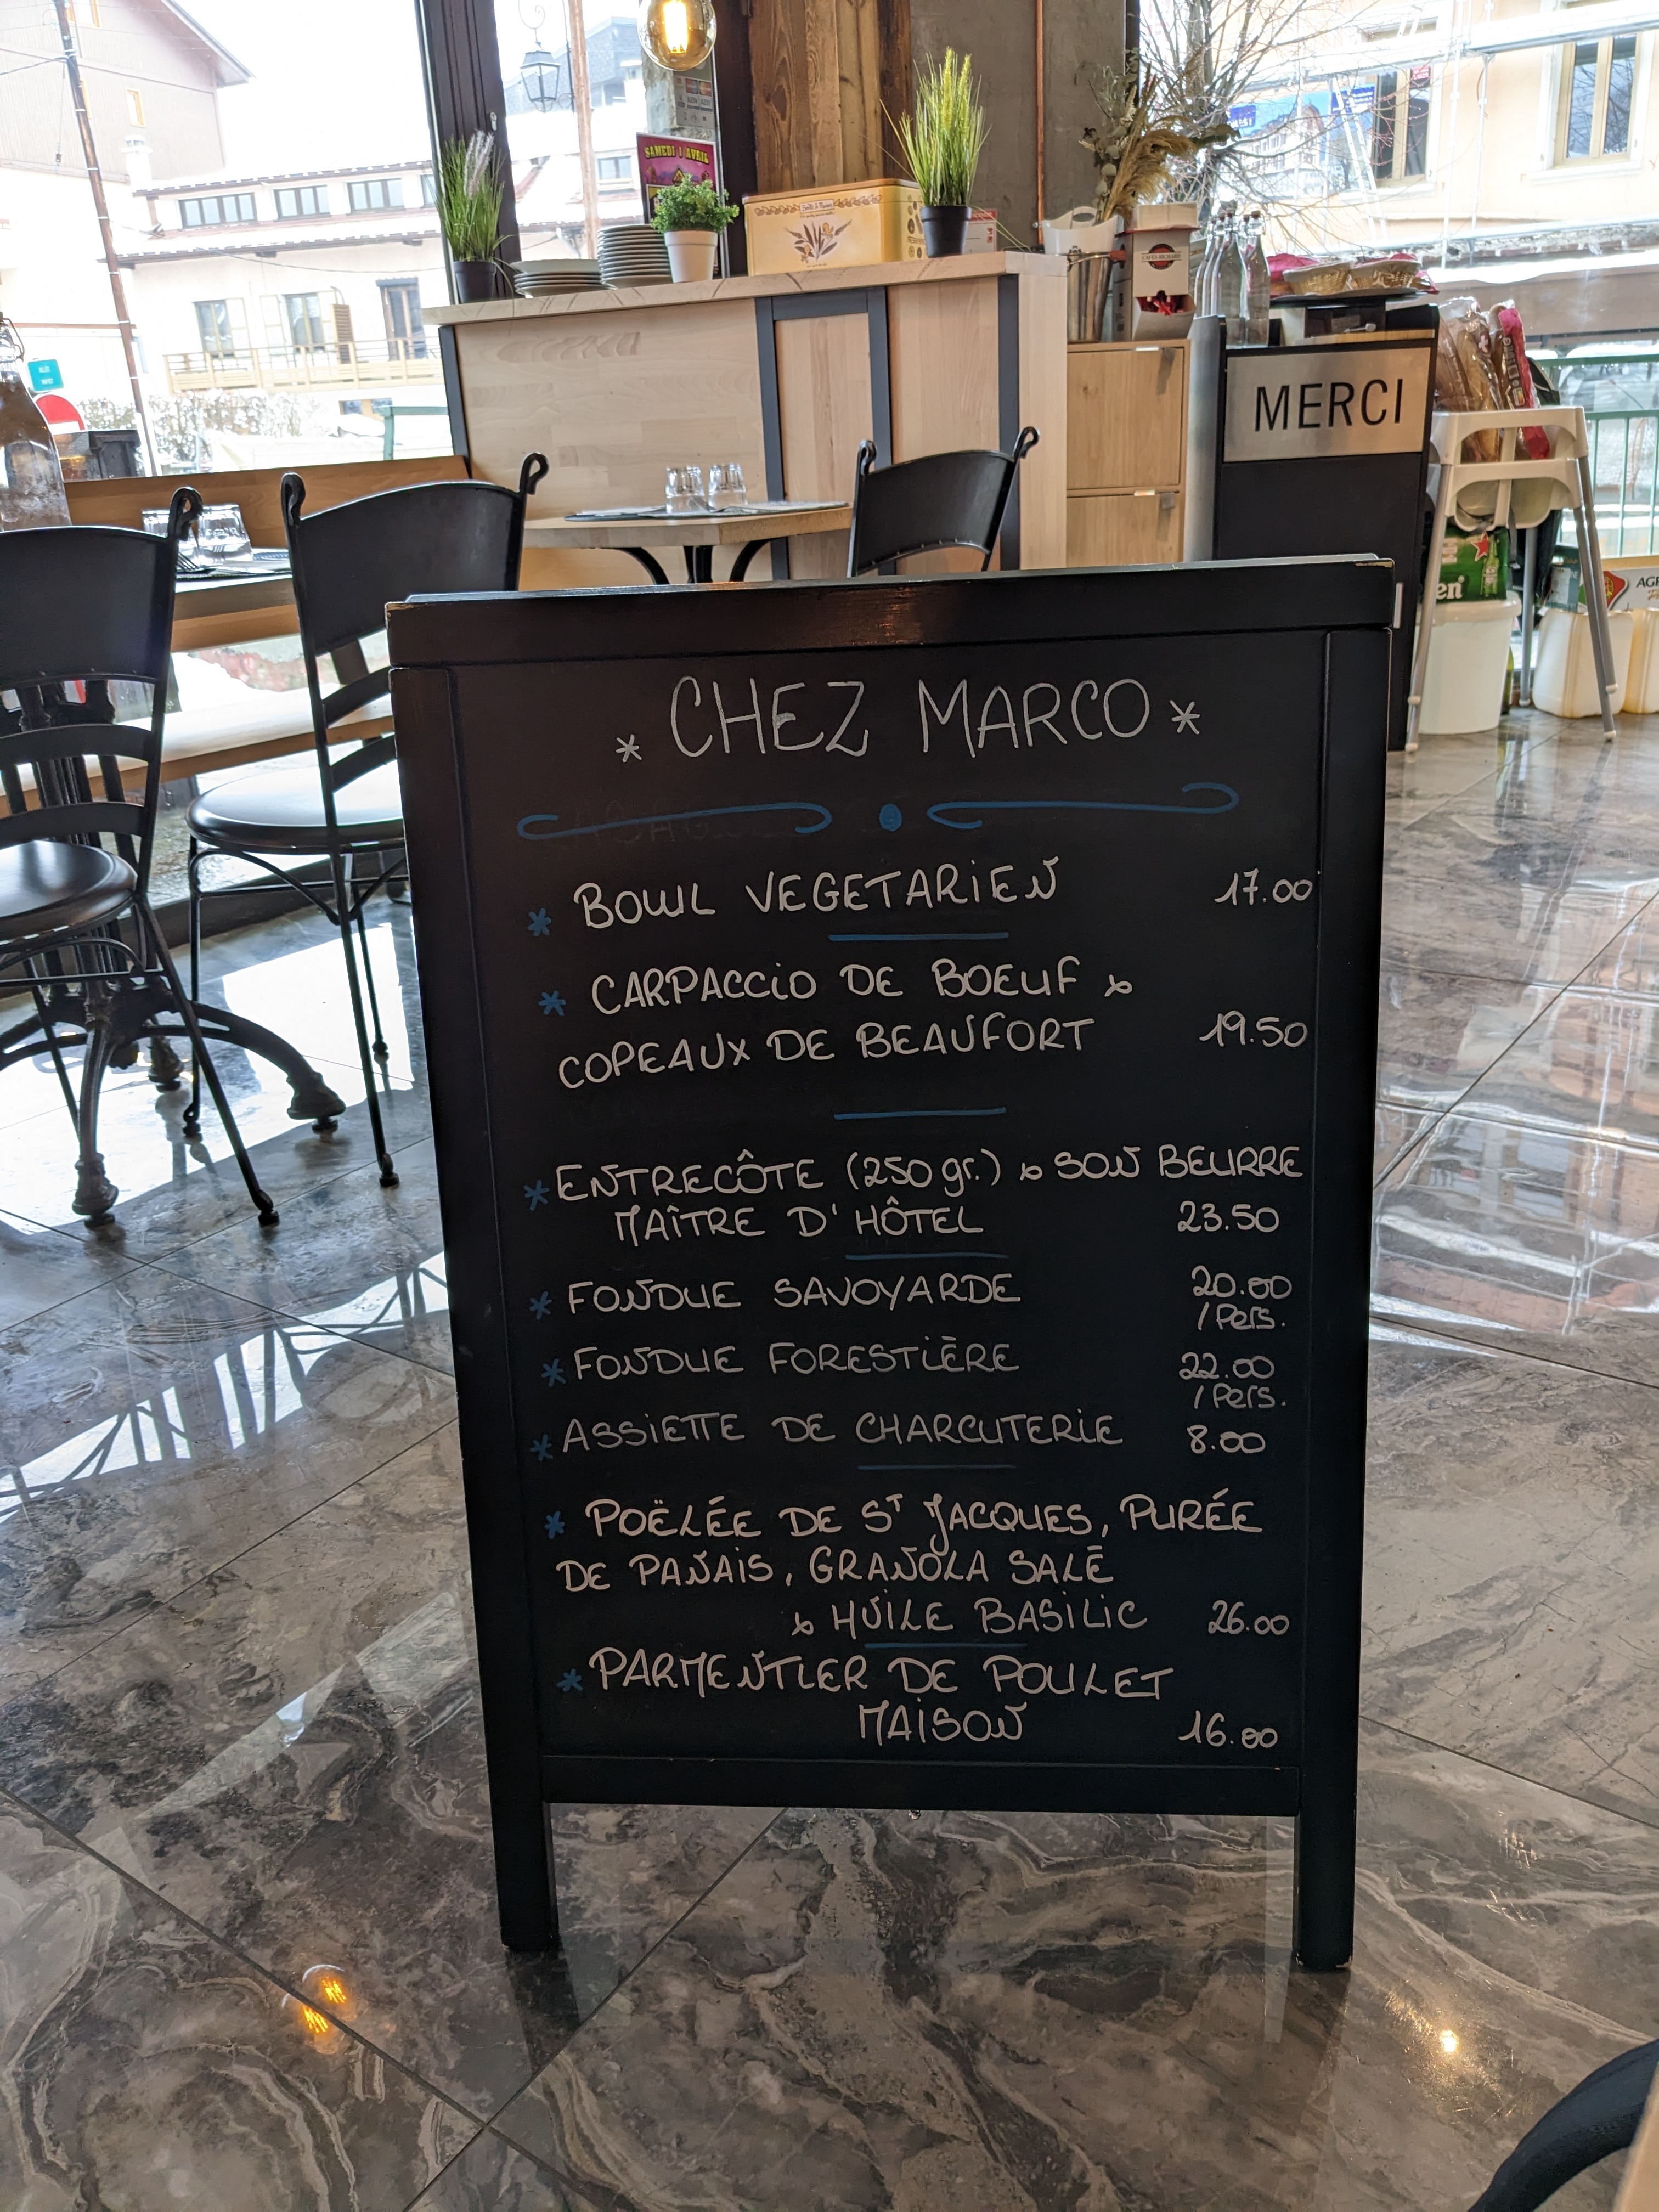 SAMEDI 1 AVRIL
CAFÉS RICHARD
MERCI
en
AGR
* CHEZ MARCO *
* BOWL VEGETARIEN 17.00
* CARPACCIO DE BOEUF &
COPEAUX DE BEAUFORT 19.50
* ENTRECÔTE (250gr.) & SON BEURRE
MAÎTRE D'HÔTEL 23.50
* FONDUE SAVOYARDE 20.00
/Pers.
* FONDUE FORESTIÈRE 22.00
/Pers.
* ASSIETTE DE CHARCUTERIE 8.00
* POËLÉE DE ST JACQUES, PURÉE
DE PANAIS, GRANOLA SALÉ
& HUILE BASILIC 26.00
* PARMENTIER DE POULET
MAISON 16.00